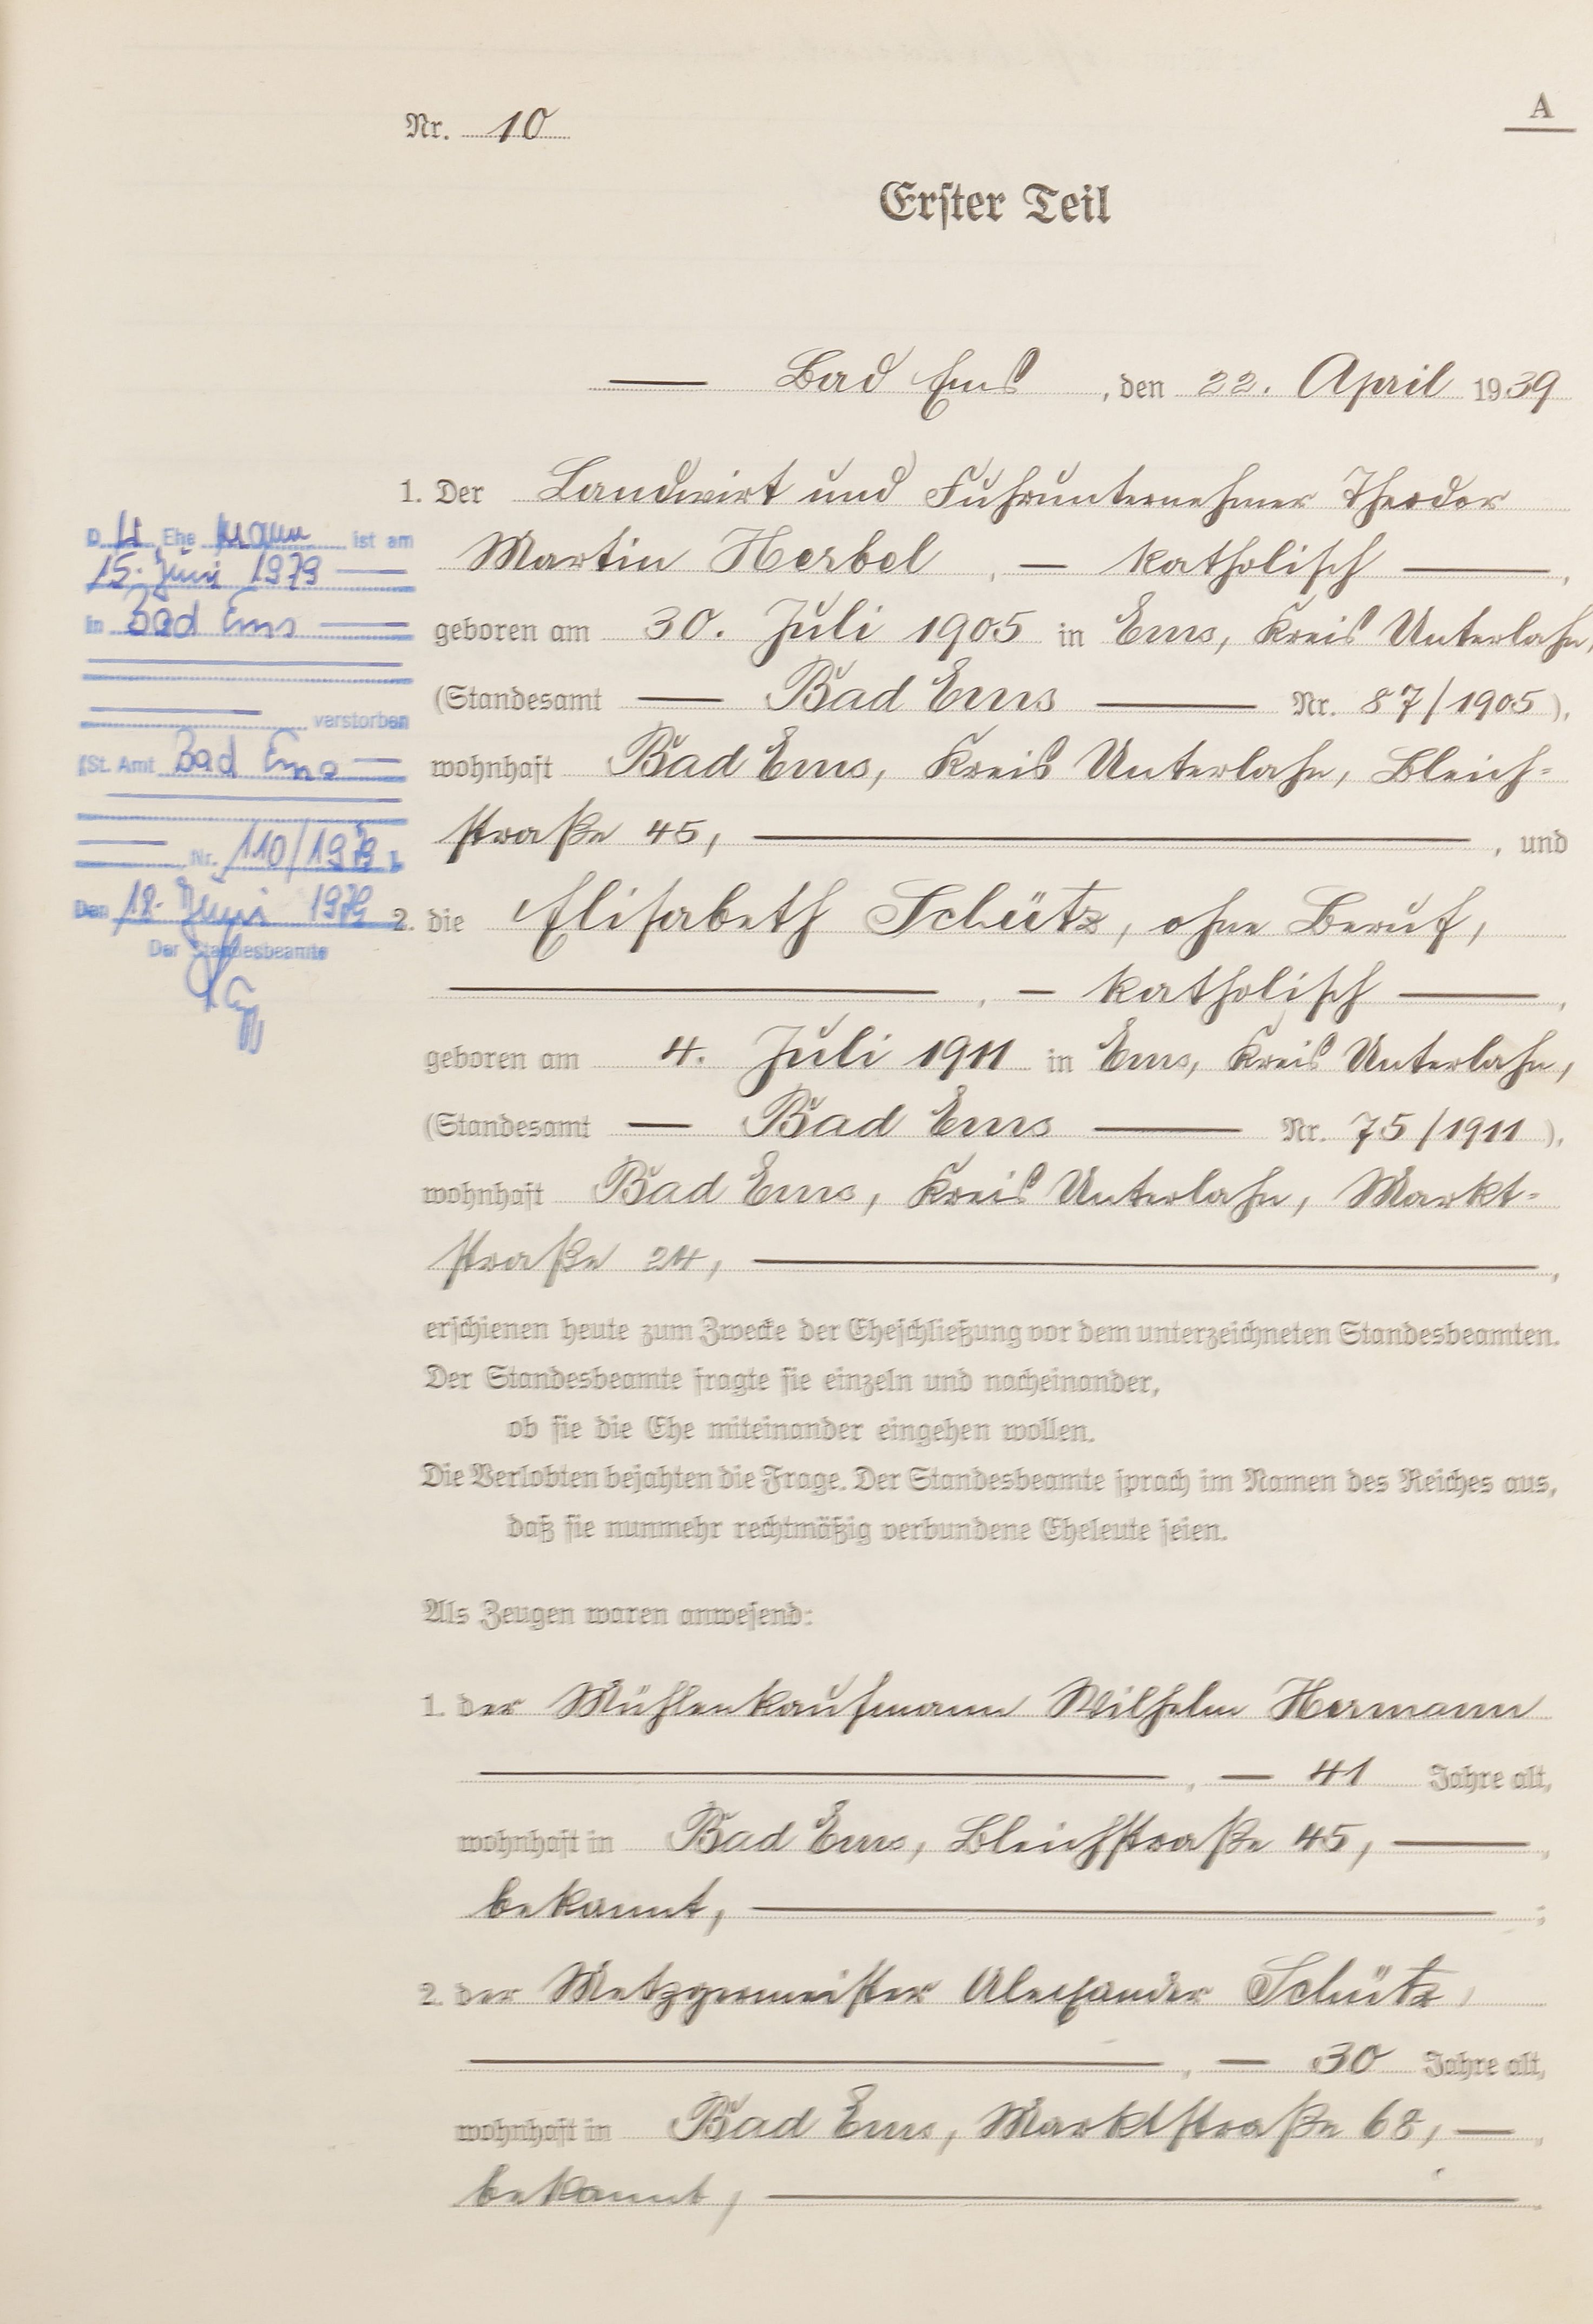 Nr. 10
A
Erster Teil
Bad Ems, den 22. April 1939
1. Der Landwirt und Fuhrunternehmer Theodor
Martin Herbel, — katholisch —,
geboren am 30. Juli 1905 in Ems, Kreis Unterlahn,
(Standesamt — Bad Ems — Nr. 87/1905),
wohnhaft Bad Ems, Kreis Unterlahn, Bleich-
straße 45, —, und
2. die Elisabeth Schütz, ohne Beruf,
—, — katholisch —,
geboren am 4. Juli 1911 in Ems, Kreis Unterlahn,
(Standesamt — Bad Ems — Nr. 75/1911),
wohnhaft Bad Ems, Kreis Unterlahn, Markt-
straße 24, —,
erschienen heute zum Zwecke der Eheschließung vor dem unterzeichneten Standesbeamten.
Der Standesbeamte fragte sie einzeln und nacheinander,
ob sie die Ehe miteinander eingehen wollen.
Die Verlobten bejahten die Frage. Der Standesbeamte sprach im Namen des Reiches aus,
daß sie nunmehr rechtmäßig verbundene Eheleute seien.
Als Zeugen waren anwesend:
1. der Mühlenkaufmann Wilhelm Hermann
—, — 41 Jahre alt,
wohnhaft in Bad Ems, Bleichstraße 45, —,
bekannt, —;
2. der Metzgermeister Alexander Schütz,
—, — 30 Jahre alt,
wohnhaft in Bad Ems, Marktstraße 68, —,
bekannt, —.
D er Ehe mann ist am
15. Juni 1979 —
in Bad Ems —
— verstorben
(St. Amt Bad Ems —
— Nr. 110/1979).
Den 18. Juni 1979
Der Standesbeamte